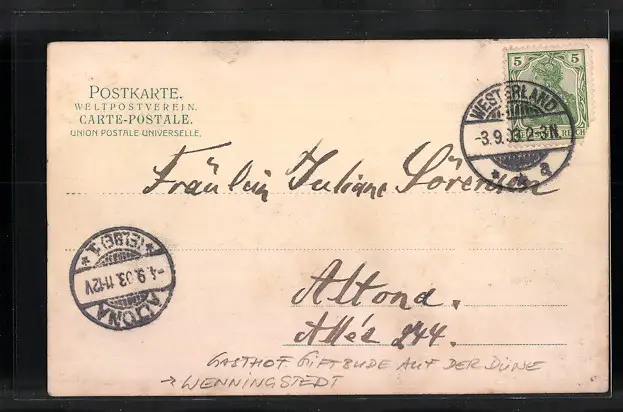 POSTKARTE.
WELTPOSTVEREIN.
CARTE-POSTALE.
UNION POSTALE UNIVERSELLE.
5 5
REICH
WESTERLAND
-3.9.03.2-3N.
* * a
Fräulein Juliane Sörensen
* (ELBE) 1. *
-4.9.03.11-12V
ALTONA
Altona.
Allée 244.
GASTHOF. GIFTBUDE AUF DER DÜNE
→ WENNINGSTEDT